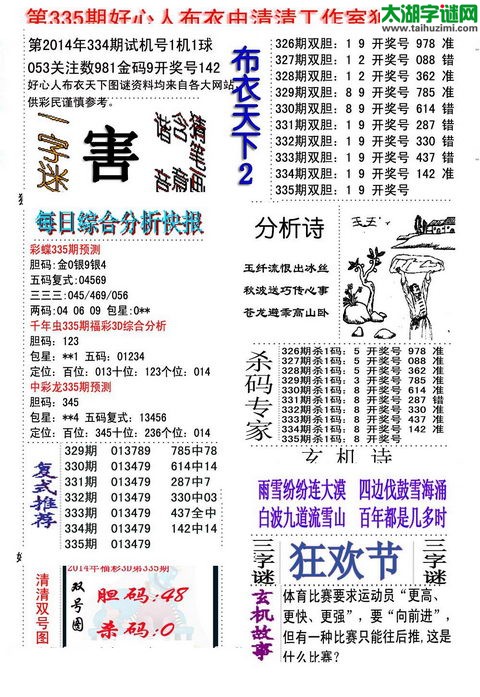 太湖字谜网
www.taihuzimi.com
第335期好心人布衣由清清工作室
第2014年334期试机号1机1球
053关注数981金码9开奖号142
好心人布衣天下图谜资料均来自各大网站
供彩民谨慎参考。
一字迷
害
每日综合分析快报
彩蝶335期预测
胆码:金0银9银4
五码复式:04569
三三三:045/469/056
两码:04 06 09 包星:0**
千年虫335期福彩3D综合分析
胆码: 123
包星: **1 五码: 01234
定位: 百位: 013十位: 123个位: 014
中彩龙335期预测
胆码: 345
包星: **4 五码复式: 13456
定位: 百位: 345十位: 236个位: 014
复式推荐
329期 013789 785中78
330期 013479 614中14
331期 013479 287中7
332期 013479 330中03
333期 013479 437全中
334期 013479 142中14
335期 013479
清清双号图
2014年福彩3D第335期
双号图
胆码:48
杀码:0
布衣天下2
326期双胆: 1 9 开奖号 978 准
327期双胆: 1 2 开奖号 088 错
328期双胆: 1 2 开奖号 362 准
329期双胆: 8 9 开奖号 785 准
330期双胆: 8 9 开奖号 614 错
331期双胆: 1 9 开奖号 287 错
332期双胆: 1 9 开奖号 330 错
333期双胆: 1 9 开奖号 437 错
334期双胆: 1 9 开奖号 142 准
335期双胆: 1 9 开奖号
分析诗
玉纤流恨出冰丝
秋波送巧传心事
苍龙避乖高山卧
杀码专家
326期杀1码: 5 开奖号 978 准
327期杀1码: 5 开奖号 088 准
328期杀1码: 5 开奖号 362 准
329期杀1码: 3 开奖号 785 准
330期杀1码: 8 开奖号 614 准
331期杀1码: 8 开奖号 287 错
332期杀1码: 8 开奖号 330 准
333期杀1码: 8 开奖号 437 准
334期杀1码: 8 开奖号 142 准
335期杀1码: 8 开奖号
玄机诗
雨雪纷纷连大漠 四边伐鼓雪海涌
白波九道流雪山 百年都是几多时
三字谜
狂欢节
三字谜
玄机故事
体育比赛要求运动员“更高、
更快、更强”,要“向前进”,
但有一种比赛只能往后推,这是
什么比赛?